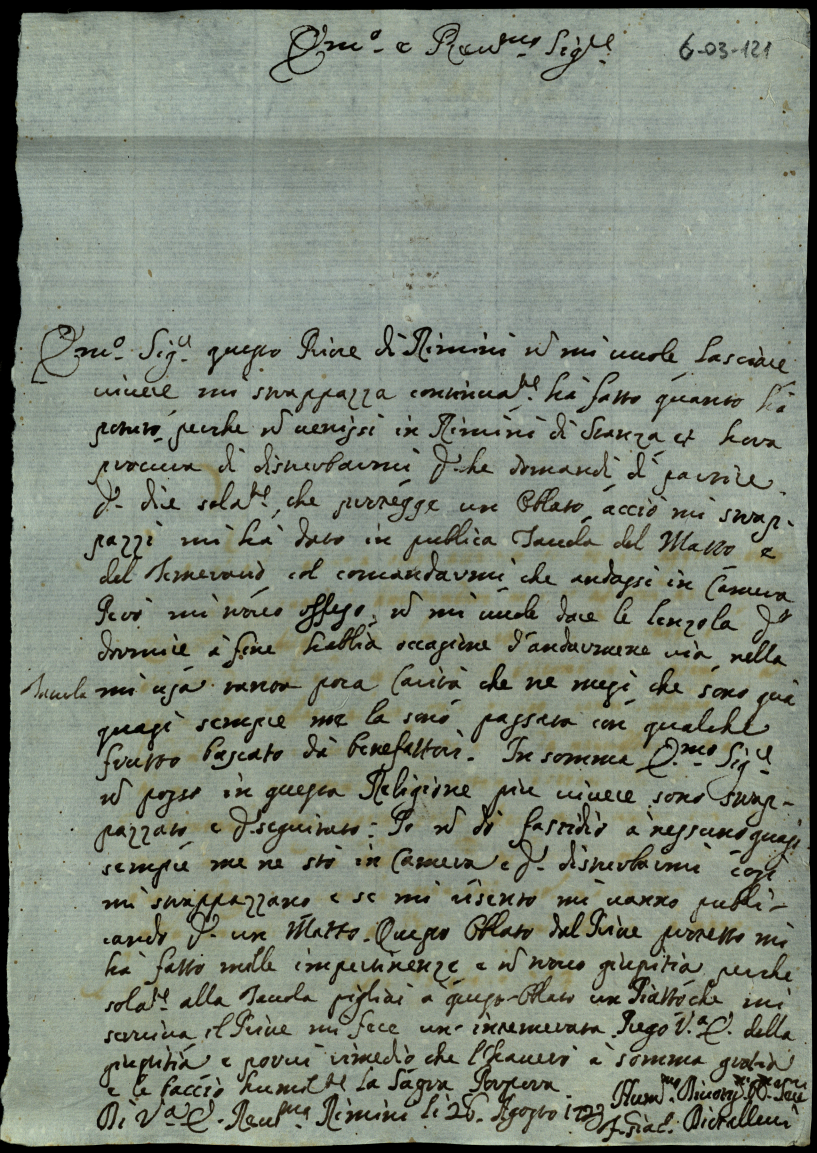 Em.º e Reu.mo Sig.re
6-03-121
Em.º Sig.re questo Priore di Rimini nõ mi uuole lasciare
uiuere mi strappazza continua.te hà fatto quanto hà
potuto perche nõ uenissi in Rimini di Stanza et hora
procura di disturbarmi che domandi di partire
die sola.te, che protegge un Oblato acciò mi strap-
pazzi mi hà dato in publica Tauola del Matto e
del Temerario col comandarmi che andassi in Camera
Però mi trouo offeso, nõ mi uuole dare le lenzola p
dormire à fine habbia occasione d'andarmene uia, nella
Tauola mi usa tanta poca Carità che ne mesi che sono quà
quasi sempre me la sono passata con qualche
frutto lasciato dà benefattori. In somma E.mo Sig.re
nõ posso in questa Religione piu uiuere sono strap-
pazzato e p̃seguitato. Io nõ dò fastidio à nessuno quasi
sempre me ne stò in Camera e p disturbarmi così
mi strappazzano e se mi risento mi uanno publi-
cando p un Matto. Questo Oblato dal Priore protetto mi
hà fatto mille impertinenze e nõ trouo giustitia, perche
sola.te alla Tauola pigliai à questo Oblato un Piatto che mi
seruiua il Priore mi fece un' intemerata. Prego V.ª E. della
giustitia e porui rimedio che l'hauerò à somma gratia
e le baccio humil.te La Sagra Porpora
Di V.ª E. Reu.ma Rimini li 26. Agosto 1723 Hum.mo
F. Giac.